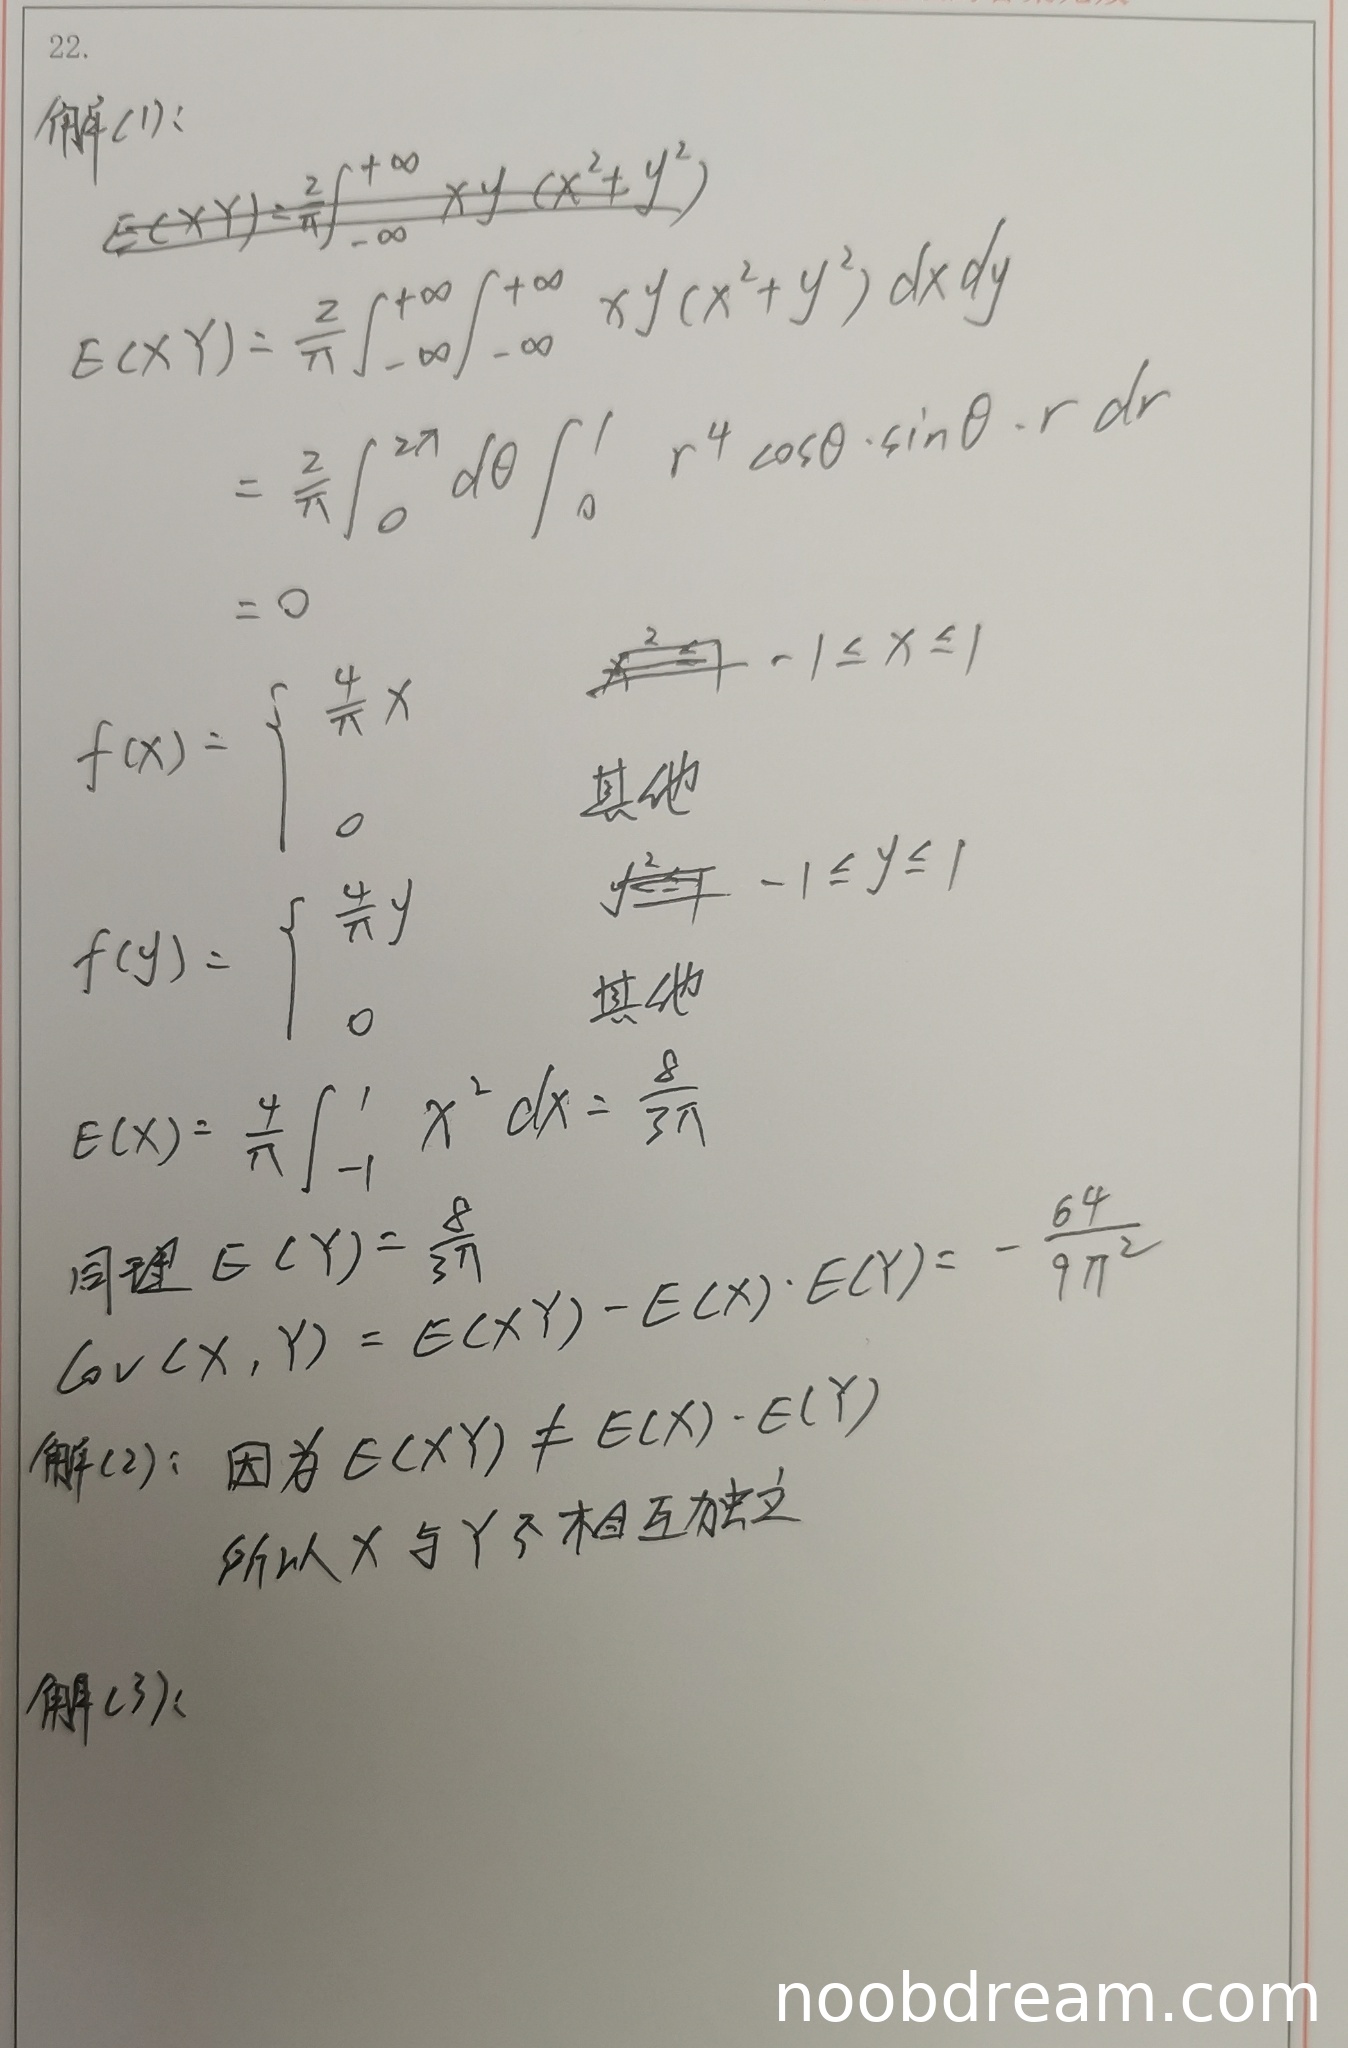 22.
解(1):
E(XY)=2/π∫_{-∞}^{+∞} xy (x²+y²)
E(XY)=2/π∫_{-∞}^{+∞}∫_{-∞}^{+∞} xy(x²+y²)dxdy
=2/π∫_0^{2π}dθ∫_0^1 r⁴cosθ·sinθ·r dr
=0
f(x)={4/π x x²≤1 -1≤x≤1
0 其他
f(y)={4/π y y²≤1 -1≤y≤1
0 其他
E(X)=4/π∫_{-1}^1 x² dx=8/3π
同理 E(Y)=8/3π
Cov(X,Y)=E(XY)-E(X)·E(Y)=-64/9π²
解(2): 因为 E(XY)≠E(X)·E(Y)
所以 X 与 Y 不相互独立
解(3):
noobdream.com